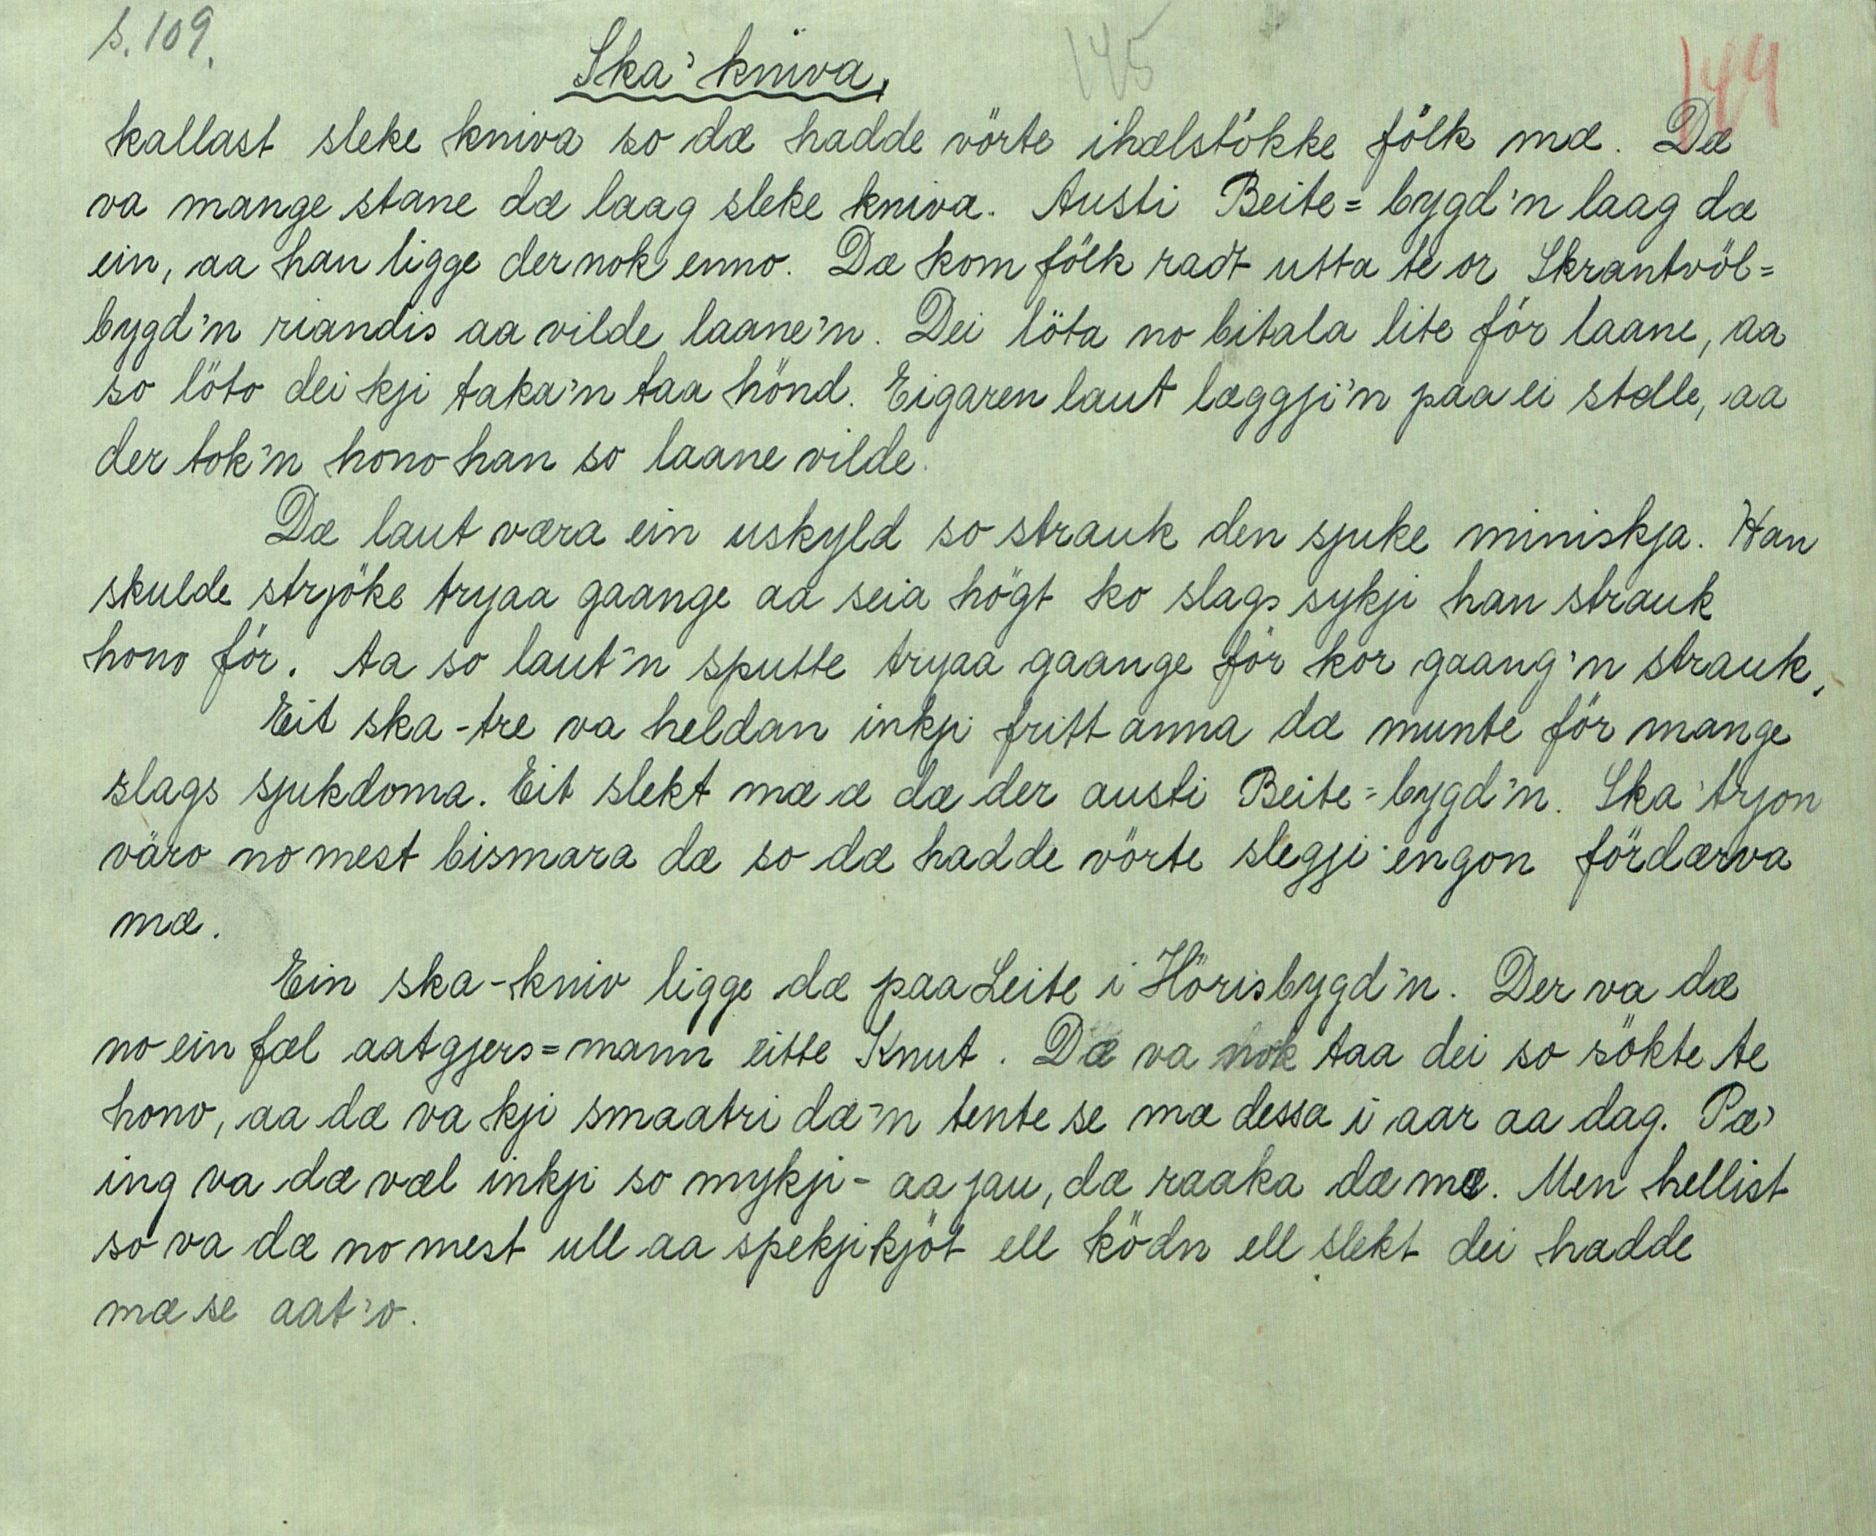 s. 109.
145
144
Ska' kniva,
kallast sleke kniva so dæ hadde vörte ihælstökke fölk mæ. Dæ
va mange stane dæ laag sleke kniva. Austi Beite= bygd'n laag dæ
ein, aa han ligge der nok enno. Dæ kom fölk radt utta te or Skrantvöl=
bygd'n riandis aa vilde laane'n. Dei löta no bitala lite för laane, aa
so löto dei kji taka'n taa hönd. Eigaren laut læggji'n paa ei stelle, aa
der tok'n hono han so laane vilde.
Dæ laut væra ein uskyld so strauk den sjuke miniskja. Han
skulde strjöke tryaa gaange aa seia högt ko slags sykji han strauk
hono för. Aa so laut'n sputte tryaa gaange för kor gaang'n strauk.
Eit ska-tre va heldan inkji fritt anna dæ munte för mange
slags sjukdoma. Eit slekt mæ æ dæ der austi Beite=bygd'n. Ska'tryon
väro no mest bismara dæ so dæ hadde vörte slegji engon fördærva
mæ.
Ein ska-kniv ligge dæ paa Leite i Hörisbygd'n. Der va dæ
no ein fæl aatgjers=mann eitte Knut. Dæ va nok taa dei so sökte te
hono, aa dæ va kji smaatri dæ'n tente se mæ dessa i aar aa dag. Pæ'
ing va dæ væl inkji so mykji - aa jau, dæ raaka dæ mæ. Men hellist
so va dæ no mest ull aa spekjikjöt ell ködn ell slekt dei hadde
mæ se aat'o.